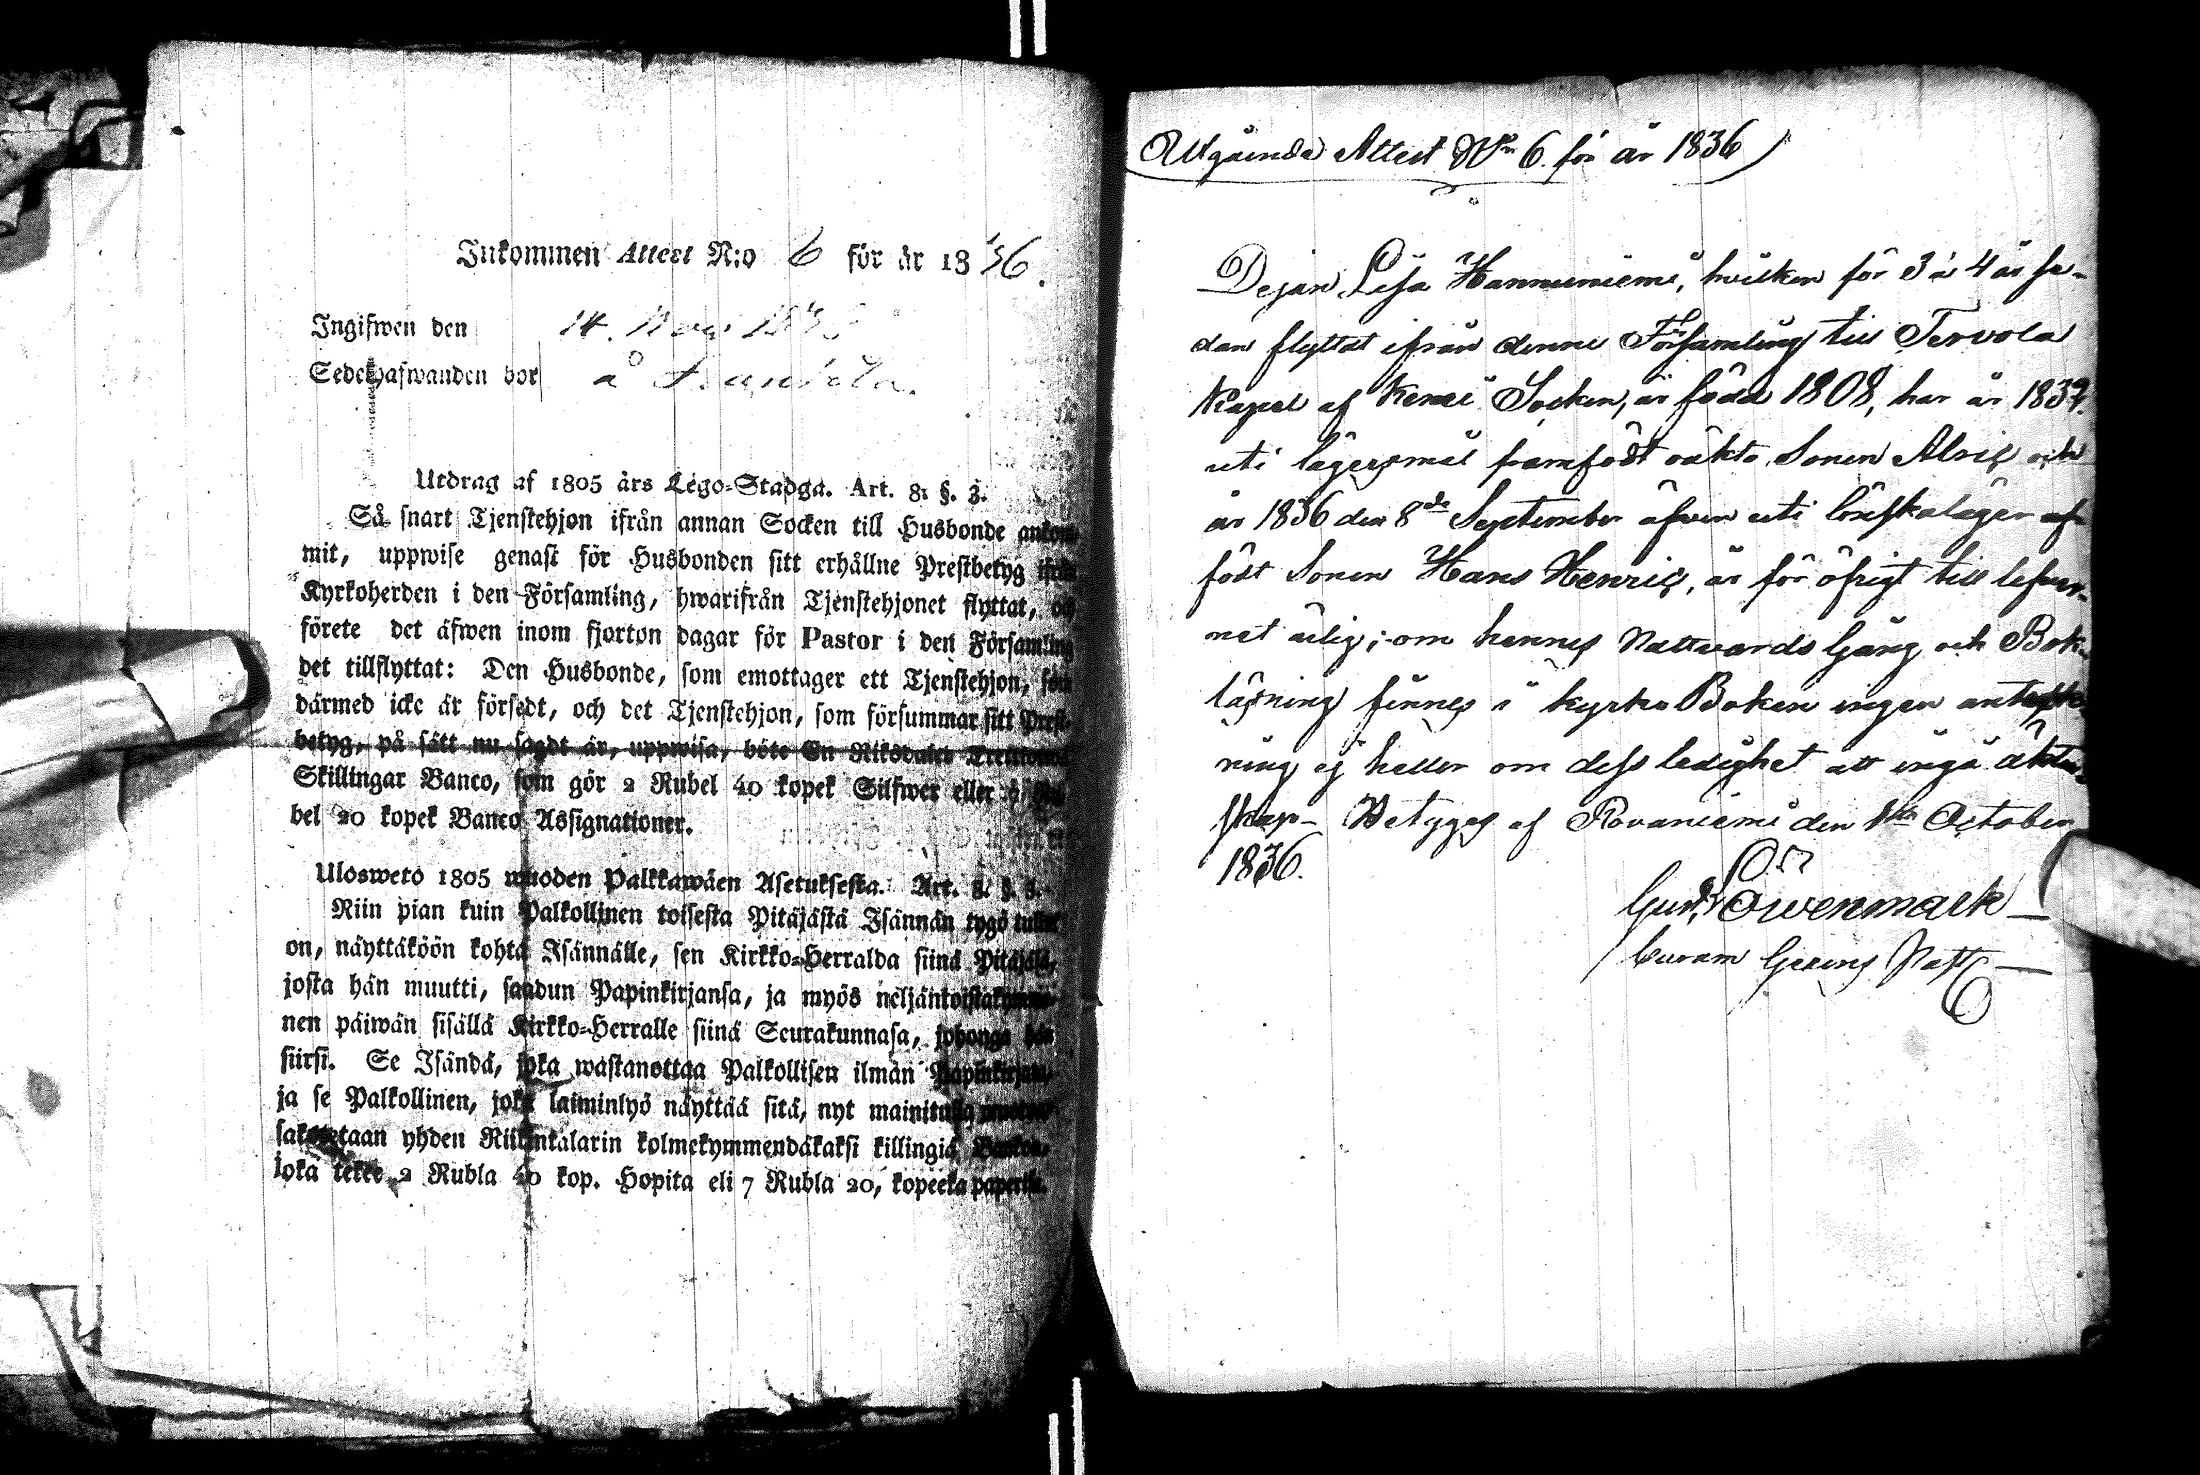 Inkommen Attest N:o 6 för år 1836.
Ingifwen den 14. Nov. 1836
Sedelhafwanden bor å
Utdrag af 1805 års Lego-Stadga. Art. 8: §. 3.
Så snart Tjenstehjon ifrån annan Socken till Husbonde ankom-
mit, uppwise genast för Husbonden sitt erhållne Prestbetyg ifrån
Kyrkoherden i den Församling, hwarifrån Tjenstehjonet flyttat, och
förete det äfwen inom fjorton dagar för Pastor i den Församling
det tillflyttat: Den Husbonde, som emottager ett Tjenstehjon, som
därmed icke är försedt, och det Tjenstehjon, som försummar sitt Prest-
betyg, på sätt nu sagdt är, uppwisa, böte En Riksdaler Trettiotvå
Skillingar Banco, som gör 2 Rubel 40 kopek Silfwer eller
bel 20 kopek Banco Assignationer.
Ulosweto 1805 wuoden Palkkawäen Asetuksesta. Art. 8: §. 3.
Niin pian kuin Palkollinen toisesta Pitäjästä Isännän tygö tullut
on, näyttäköön kohta Isännälle, sen Kirkko-Herralda siinä Pitäjäsä,
josta hän muutti, saadun Papinkirjansa, ja myös neljäntoistakymme-
nen päiwän sisällä Kirkko-Herralle siinä Seurakunnasa, johonga hän
siirsi. Se Isändä, joka wastanottaa Palkollisen ilman Papinkirjata,
ja se Palkollinen, joka laiminlyö näyttää sitä, nyt mainitulla
sakotetaan yhden Riikintalarin kolmekymmendäkaksi killingiä Bankoa,
joka tekee 2 Rubla 40 kop. Hopita eli 7 Rubla 20, kopeeka paperia.
Utgående Attest N:o 6. för år 1836
Pejan, Lisa Hannuniemi, hvilken för 3 à 4 år se-
dan flyttat ifrån denne Församling till Tervola
Kapel af Kemi Socken, är född 1808, har år
uti lägersmål framfödt oäkta Sonen Alric och
år 1836 den 8de September äfven uti lönskaläger af-
födt Sonen Hans Henric, är för öfrigt till lefver-
net ärlig; om hennes Nattvards Gång och Bok-
läsning finnes i kyrko Boken ingen anteck-
ning ej heller om dess ledighet att ingå äkten-
skap Betyges af Rovaniemi den 1ste October
1836.